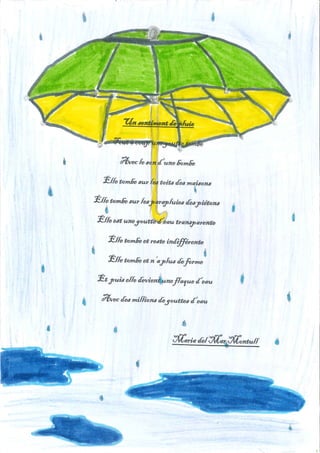 Un sentiment de pluie
Tout à coup une goutte tombe
Avec le son d'une bombe
Elle tombe sur les toits des maisons
Elle tombe sur les parapluies des piétons
Elle est une goutte d'eau transparente
Elle tombe et reste indifférente
Elle tombe et n'a plus de forme
Et puis elle devient une flaque d'eau
Avec des millions de gouttes d'eau
Maria del Mar Montull